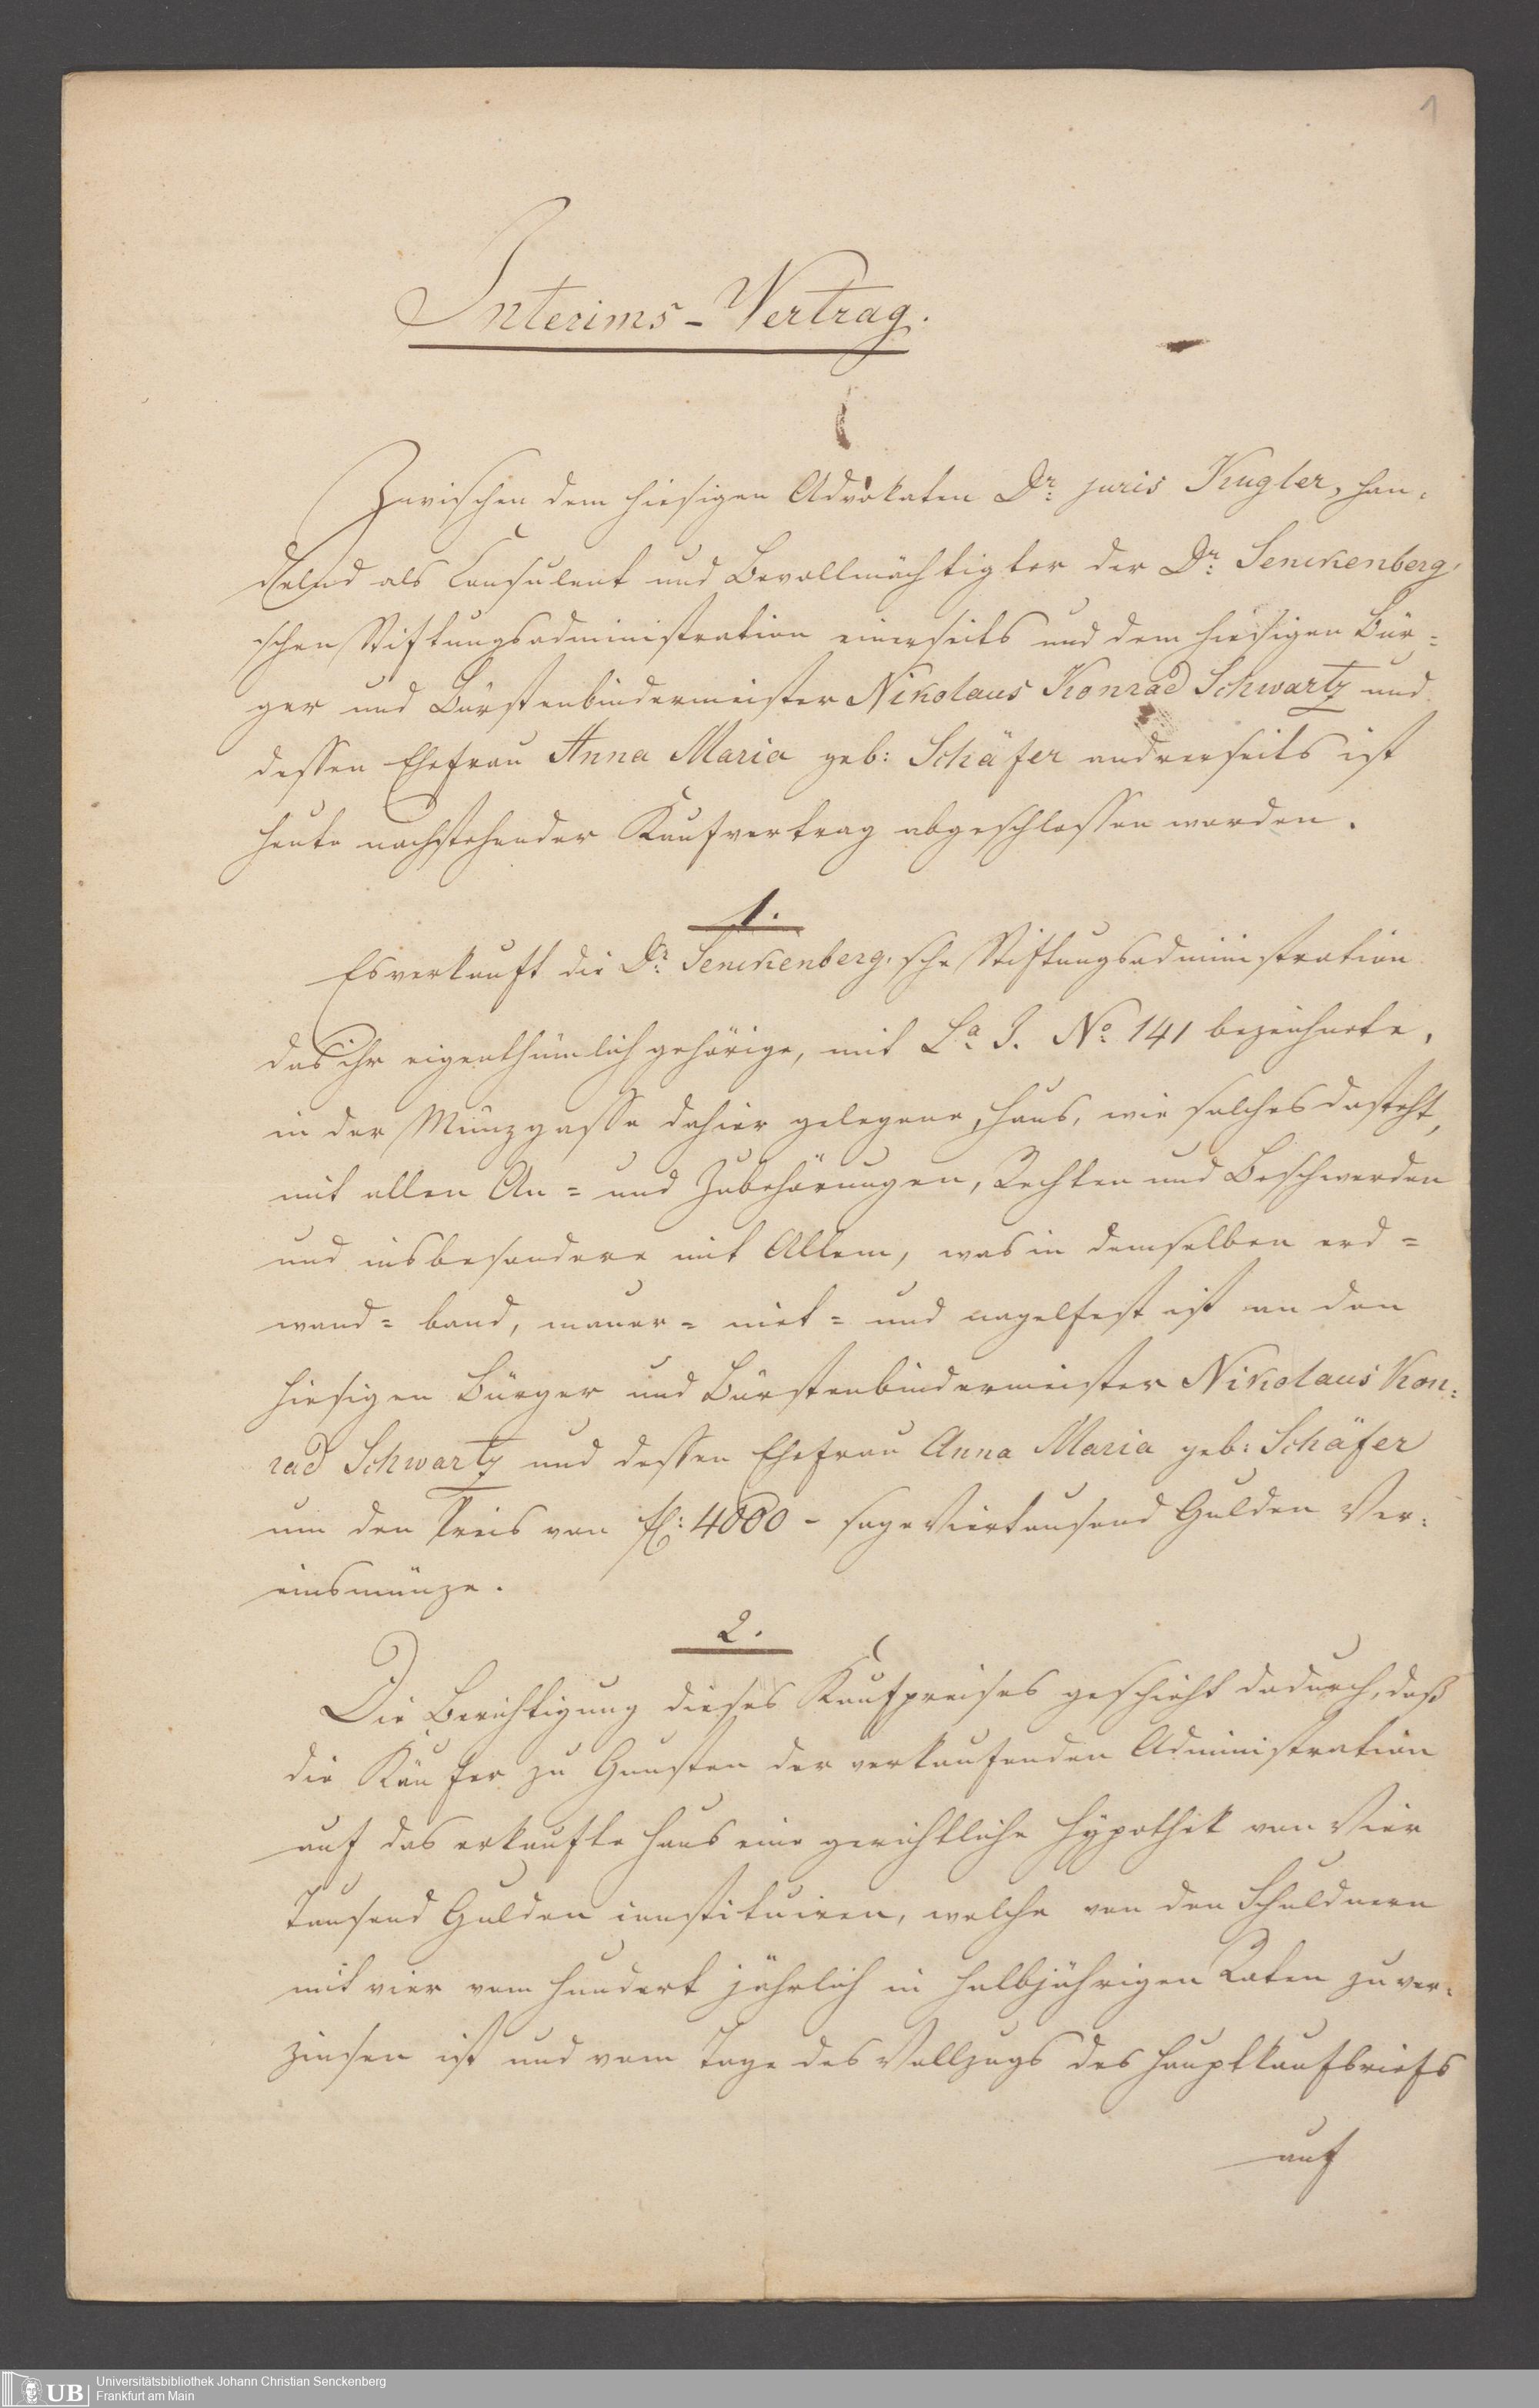 1
Interims-Vertrag.
Zwischen dem hiesigen Advokaten Dr: juris Kugler, han-
delnd als Consulent und Bevollmächtigter der Dr: Senckenberg'
schen Stiftungsadministration einerseits und dem hiesigen Bür=
ger und Bürstenbindermeister Nikolaus Konrad Schwartz und
dessen Ehefrau Anna Maria geb: Schäfer andrerseits ist
heute nachstehender Kaufvertrag abgeschlossen worden.
1.
Es verkauft die Dr: Senckenberg'sche Stiftungsadministration
das ihr eigenthümlich gehörige, mit La J. No 141 bezeichnete,
in der Münzgasse dahier gelegene, Haus, wie solches dasteht,
mit allen An= und Zubehörungen, Rechten und Beschwerden
und insbesondere mit Allem, was in demselben erd=
wand= band, mauer= niet= und nagelfest ist an den
hiesigen Bürger und Bürstenbindermeister Nikolaus Kon=
rad Schwartz und dessen Ehefrau Anna Maria geb: Schäfer
um den Preis von fl: 4000 - sage Viertausend Gulden Ver=
einsmünze.
2.
Die Berichtigung dieses Kaufpreises geschieht dadurch, daß
die Käufer zu Gunsten der verkaufenden Administration
auf das erkaufte Haus eine gerichtliche Hypothek von Vier
Tausend Gulden constituiren, welche von den Schuldnern
mit vier vom Hundert jährlich in halbjährigen Raten zu ver=
zinsen ist und vom Tage des Vollzugs des Hauptkaufbriefs
auf
UB
Universitätsbibliothek Johann Christian Senckenberg
Frankfurt am Main